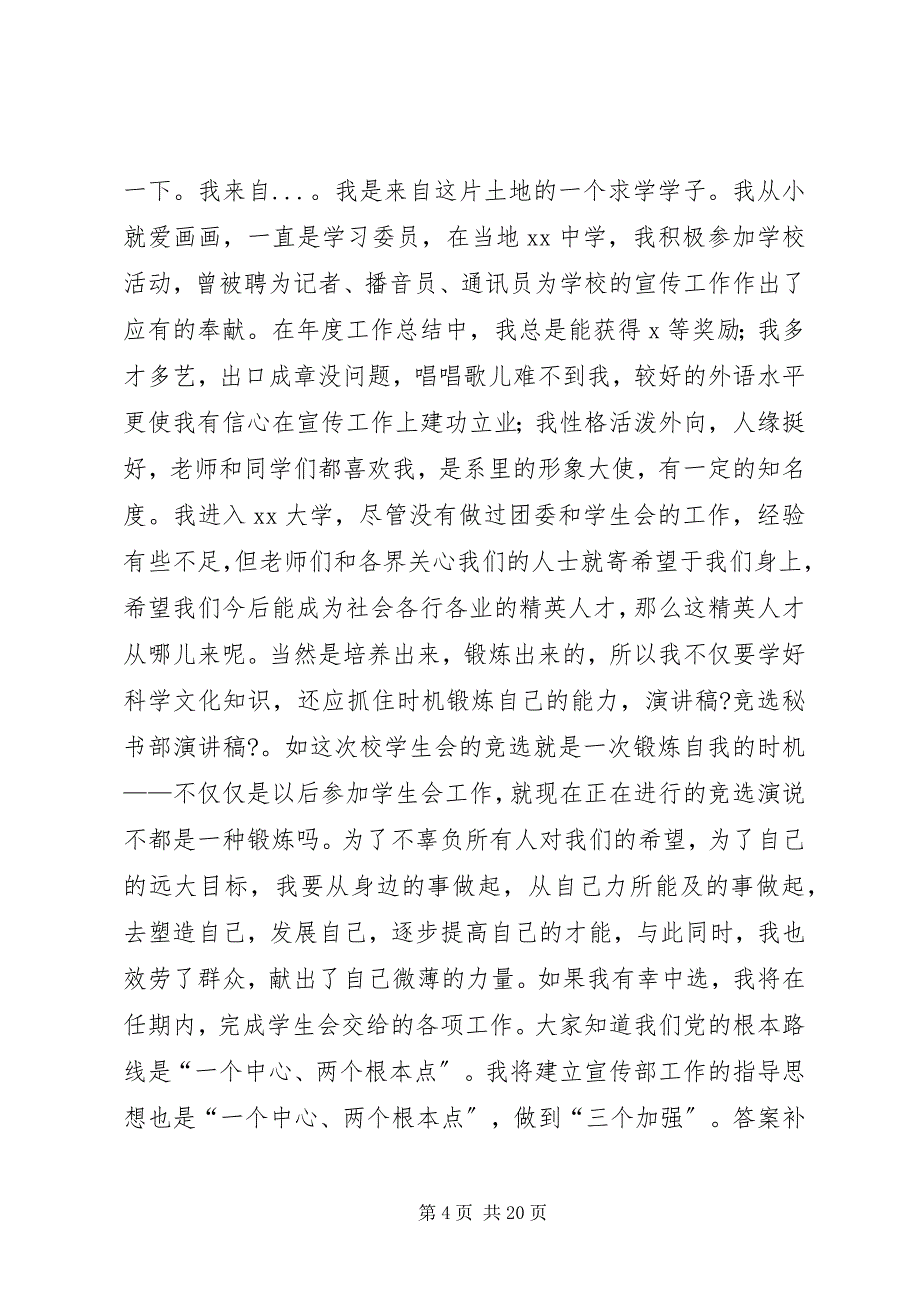 一下。我来自...。我是来自这片土地的一个求学学子。我从小
就爱画画，一直是学习委员，在当地 xx 中学，我积极参加学校
活动，曾被聘为记者、播音员、通讯员为学校的宣传工作作出了
应有的奉献。在年度工作总结中，我总是能获得 x 等奖励；我多
才多艺，出口成章没问题，唱唱歌儿难不到我，较好的外语水平
更使我有信心在宣传工作上建功立业；我性格活泼外向，人缘挺
好，老师和同学们都喜欢我，是系里的形象大使，有一定的知名
度。我进入 xx 大学，尽管没有做过团委和学生会的工作，经验
有些不足，但老师们和各界关心我们的人士就寄希望于我们身上，
希望我们今后能成为社会各行各业的精英人才，那么这精英人才
从哪儿来呢。当然是培养出来，锻炼出来的，所以我不仅要学好
科学文化知识，还应抓住时机锻炼自己的能力，演讲稿?竞选秘
书部演讲稿?。如这次校学生会的竞选就是一次锻炼自我的时机
——不仅仅是以后参加学生会工作，就现在正在进行的竞选演说
不都是一种锻炼吗。为了不辜负所有人对我们的希望，为了自己
的远大目标，我要从身边的事做起，从自己力所能及的事做起，
去塑造自己，发展自己，逐步提高自己的才能，与此同时，我也
效劳了群众，献出了自己微薄的力量。如果我有幸中选，我将在
任期内，完成学生会交给的各项工作。大家知道我们党的根本路
线是“一个中心、两个根本点〞。我将建立宣传部工作的指导思
想也是“一个中心、两个根本点〞，做到“三个加强〞。答案补
第 4 页 共 20 页